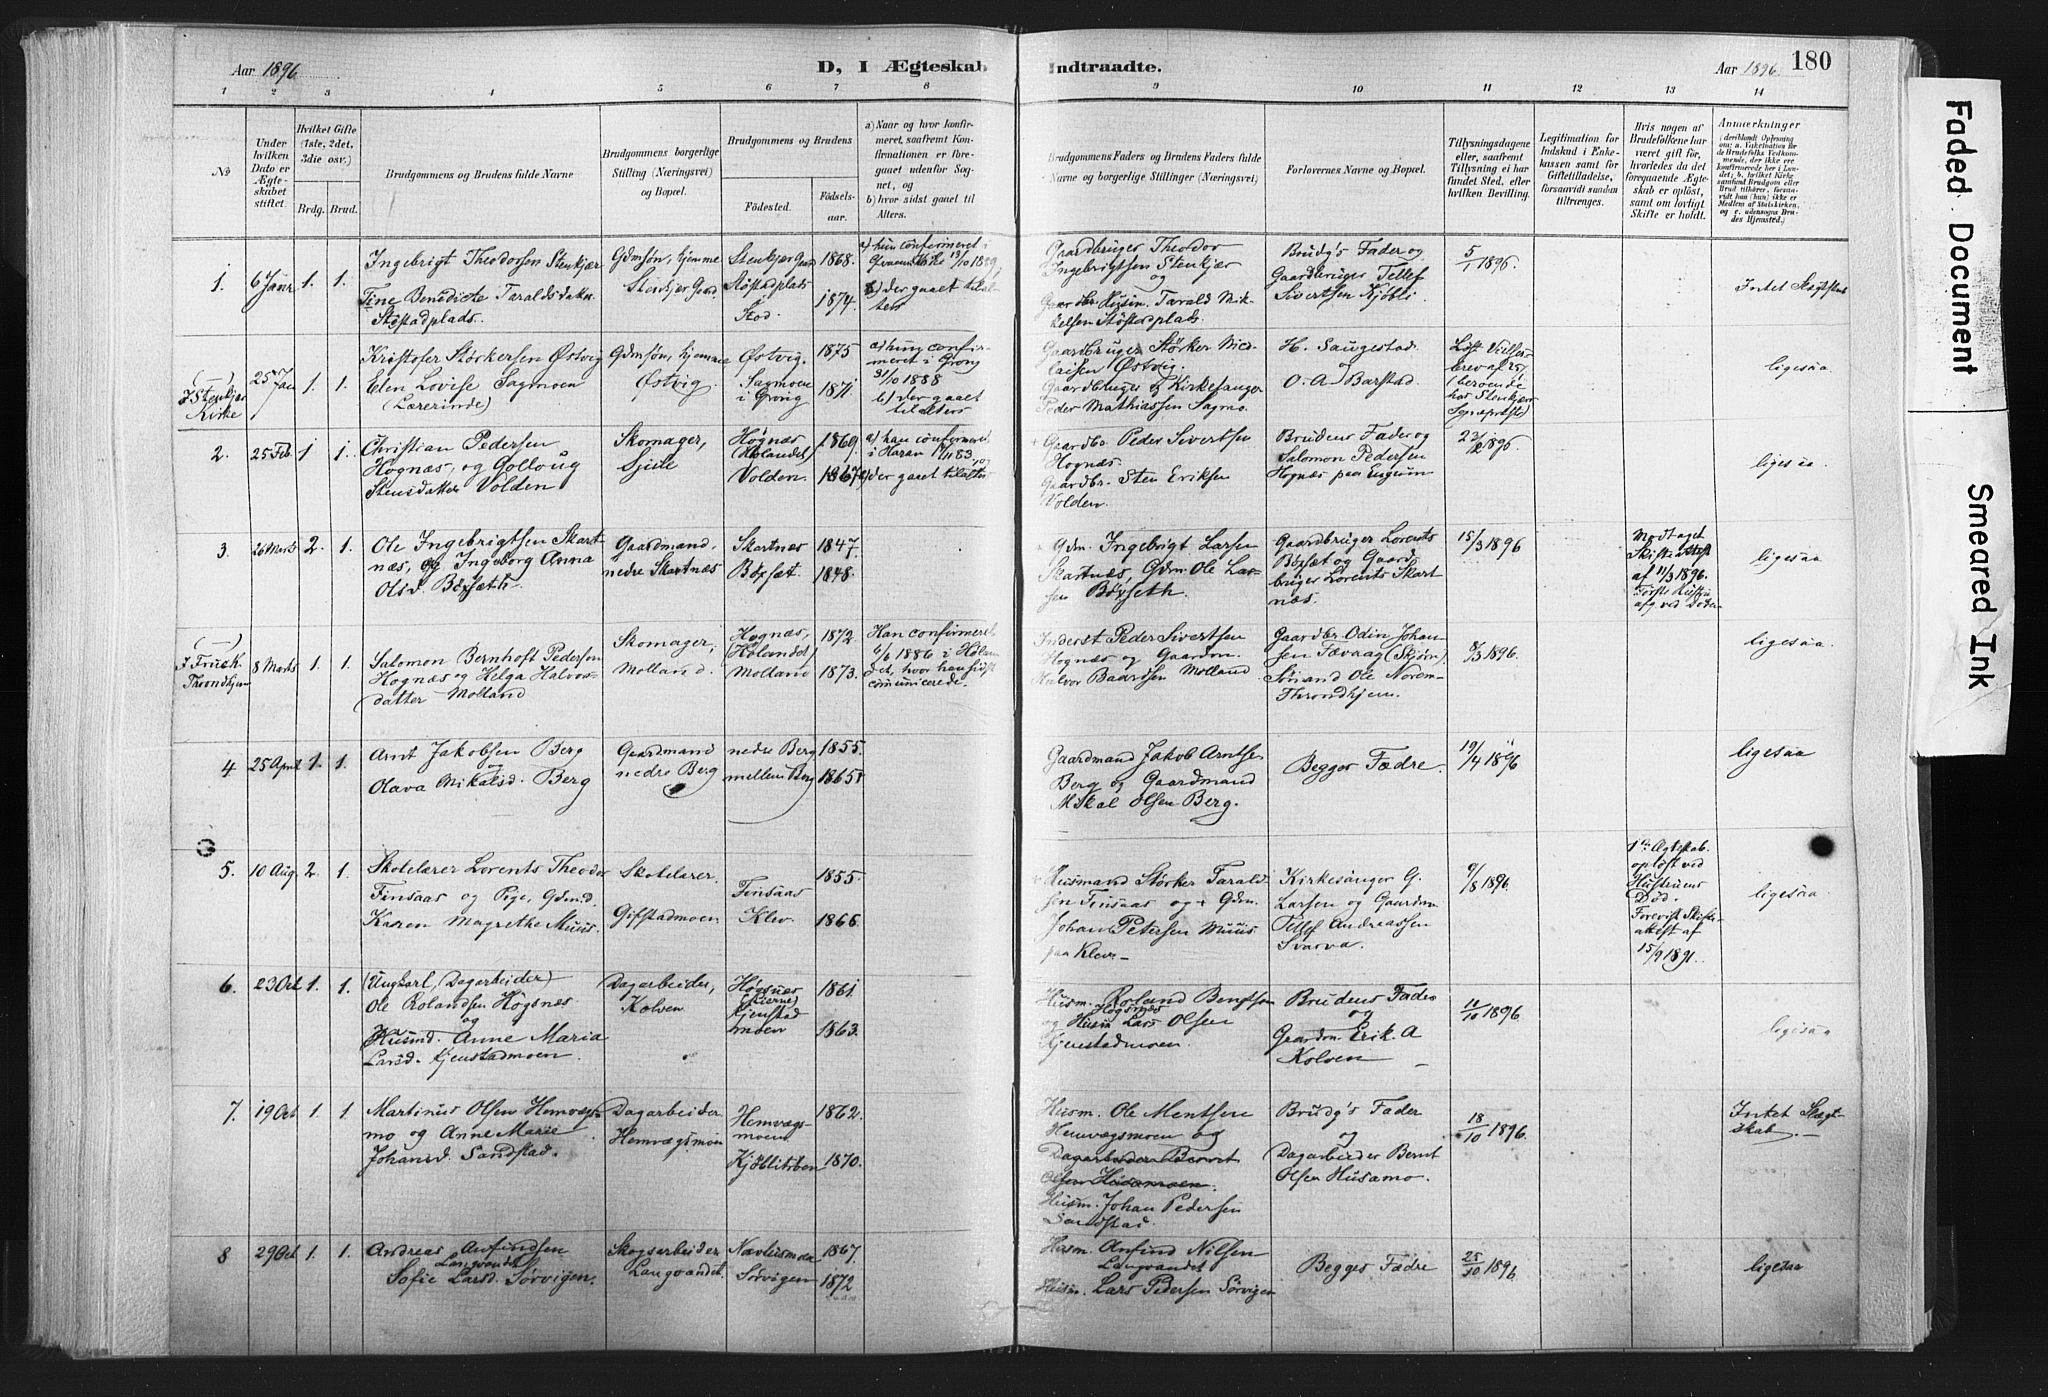 Aar 1896
D, I Ægteskab
Indtraadte.
Aar 1896. 180
1 2 3 4 5 6 7 8 9 10 11 12 13 14
No
Under
hvilken
Dato er
Ægte-
skabet
stiftet.
Hvilket Gifte
(1ste, 2det,
3die osv.)
Brdg. Brud.
Brudgommens og Brudens fulde Navne
Brudgommens borgerlige
Stilling (Næringsvei)
og Bopæl.
Brudgommens og Brudens
Fødested.
Fødsels-
aar.
a) Naar og hvor konfir-
meret, saafremt Kon-
firmationen er fore-
gaaet udenfor Sog-
net, og
b) hvor sidst gaaet til
Alters.
Brudgommens Faders og Brudens Faders fulde
Navne og borgerlige Stillinger (Næringsvei)
Forlovernes Navne og Bopæl.
Tillysningsdagene
eller, saafremt
Tillysning ei har
fundet Sted, efter
hvilken Bevilling.
Legitimation for
Indskud i Enke-
kassen samt for
Giftetilladelse,
forsaavidt saadan
tiltrænges.
Hvis nogen af
Brudefolkene har
været gift før,
hvorledes da det
foregaaende Ægte-
skab er opløst,
samt om lovligt
Skifte er holdt.
Anmærkninger
1. 6 Janr 1. 1.
Ingebrigt Theodorsen Stenkjær
Tine Benedicte Taraldsdatter
Støstadplads.
Gdmsøn, hjemme
Stenkjer Gaard
Stenkjer Gaard
Støstadplads
Stod.
1868.
1874.
a) hun confirmeret i
b) der gaaet til al-
ters
Gaardbruger Theodor
Ingebrigtsen Stenkjær
og
Gaardbr. Husm. Tarald Mik-
kelsen Støstadplads.
Brudg's Fader og
Gaardbruger Tellef
Sivertsen Kjøbli
5/1 1896.
Intet Slægtskab
(—)
I Stenkjær
Kirke
25 Jan 1. 1.
Kristofer Størkersen Østvig
Elen Lovise Sagmoen
(Lærerinde)
Gdmsøn, hjemme
Østvig.
Østvig.
Sagmoen
i Grong
1875
1871
a) hun confir-
meret i Grong
31/10 1888
b) der gaaet
til alters
Gaardbruger Størker Nico-
laisen Østvig.
Gaardbruger og Kirkesanger
Peder Mathiassen Sagmo.
H. Saugestad
O. A Barstad.
ligesaa
2. 25 Feb. 1 1.
Christian Pedersen
Hognæs, og Golloug
Stensdatter Volden
Skomager,
Høgnæs
(Holandet)
Volden.
1869.
1867
a) han confirmeret
b) der gaaet til alters
Gaardbr. Peder Sivertsen
Hognæs.
Gaardbr. Sten Eriksen
Volden.
Brudens Fader og
Salomon Pedersen
Hognæs paa Eggum
23/2 1896
ligesaa.
3. 26 Marts 2. 1.
Ole Ingebrigtsen Skart
næs, og Ingeborg Anna
Olsd. Bøxseth.
Gaardmand,
nedre Skartnæs
Skartnæs
Bøxsæt.
1847.
1848.
Gdm. Ingebrigt Larsen
Skartnæs, Gdm. Ole Lar-
sen Bøxseth.
Gaardbruger Lorents
Bøxsæt og Gaard
bruger Lorents Skart
næs.
15/3 1896
Modtaget
Skifteattest
af 11/3 1896.
Første Hustru
afg ved Døden
ligesaa
(—)
I Frue K.
Throndhjem
8 Marts 1. 1.
Salomon Bernhoft Pedersen
Hognæs og Helga Halvors-
datter Molland
Skomager,
Molland.
Hognæs,
(Holandet)
Molland
1872.
1873.
Han confirmeret
1886 i Holan
det, hvor han sidst
communicerede.
Inderst Peder Sivertsen
Hognæs og Gaardm.
Halvor Baardsen Molland
Gaardbr. Odin Johan
sen Fævaag (Skjørn)
Ole Norem-
Throndhjem.
8/3 1896.
ligesaa
4 25 April 1. 1.
Arnt Jakobsen Berg
og
Olava Mikalsd. Berg
Gaardmand
nedre Berg
nedre Berg
mellem Berg
1855.
1865.
Gaardmand Jakob Arntsen
Berg og Gaardmand
Mikal Olsen Berg.
Begges Fædre.
19/4 1896
ligesaa
5. 10 Aug. 2. 1.
Skolelærer Lorents Theodor
Finsaas og Pige, Gdmd.
Karen Magrethe Muus.
Skolelærer.
Gifstadmoen
Finsaas
Klev.
1855.
1866.
Husmand Størker Tarald-
sen Finsaas og + Gdm.
Johan Petersen Muus
paa Klev. –
Kirkesanger G.
Larsen og Gaardm
Tellef Andreassen
Svarva.
9/8 1896.
1ste Ægteskab
opløst ved
Hustruens
Død.
Forevist Skifte-
attest af
15/9 1891.
ligesaa
6. 23 Oct 1. 1.
(Ungkarl, Dagarbeider)
Ole Rolandsen Høgsnæs
og
Husmd. Anne Maria
Larsd. Kjenstadmoen.
Dagarbeider,
Kolven
Høgsnæs
Kjenstad
moen
1861
1863.
Husm. Roland Bengtsen
Høgsnæs
og Husm Lars Olsen
Kjenstadmoen
Brudens Fader
og
Gaardm. Erik. A
Kolven –
11/10 1896
ligesaa
7. 19 Oct 1. 1.
Martinus Olsen Hemvægs-
mo og Anne Marie
Johansd. Sandstad.
Dagarbeider
Hemvægsmoen
Hemvægs-
moen
Kjøblitrøen
1862.
1870.
Husm. Ole Mentsen
Hemvægsmoen og
Dagarbeider Bernt
Olsen Husamoen.
Husm. Johan Pedersen
Sandstad.
Brudg's Fader
og
Dagarbeider Bernt
Olsen Husamo.
18/10 1896.
Intet Slægt-
skab. –
8 29 Oct 1. 1.
Andreas Anfindsen
Langvandet
Sofie Larsd. Sørvigen.
Skogsarbeider
Langvandet.
Sørvigen
1867
1872
Husm. Anfind Nilsen
Langvandet
Husm. Lars Pedersen Sørvigen
Begges Fædre
25/10 1896
ligesaa
Faded Document
Smeared Ink